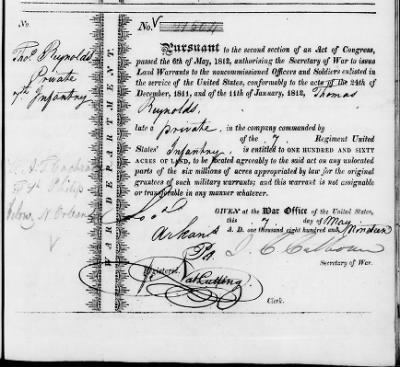 No.
Thos Reynolds
Private
7th Infantry
Philip
N. Orleans
WAR DEPARTMENT.
No.
Pursuant to the second section of an Act of Congress,
passed the 6th of May, 1812, authorising the Secretary of War to issue
Land Warrants to the noncommissioned Officers and Soldiers enlisted in
the service of the United States, conformably to the acts of the 24th of
December, 1811, and of the 11th of January, 1812, Thomas
Reynolds,
late a private in the company commanded by
of the 7 Regiment United
States' Infantry, is entitled to ONE HUNDRED AND SIXTY
ACRES OF LAND, to be located agreeably to the said act on any unlocated
parts of the six millions of acres appropriated by law for the original
grantees of such military warrants; and this warrant is not assignable
or transferable in any manner whatever.
GIVEN at the War Office of the United States,
this 7 day of May
A. D. one thousand eight hundred and Nineteen
Arkans
J. C. Calhoun
Secretary of War.
Registered.
Nat Cutting
Clerk.